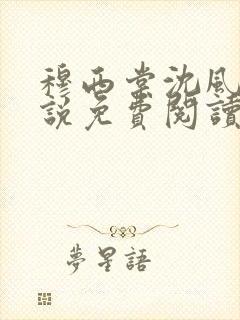 穆西棠沈風
說免費閱讀
夢星語